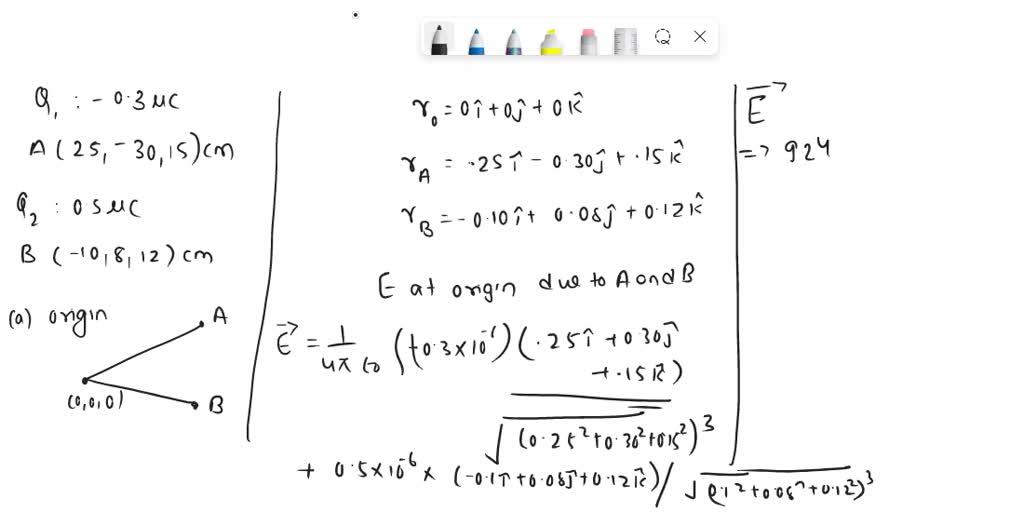 Q₁ : - 0.3 μC
A (25, - 30, 15) cm
Q₂ : 0.5 μC
B (-10, 8, 12) cm
(a) origin
A
(0,0,0)
B
r₀ = 0î + 0ĵ + 0k̂
r_A = .25î - 0.30ĵ + .15k̂
r_B = - 0.10î + 0.08ĵ + 0.12k̂
E at origin due to A and B
E⃗ = 1/4π ε₀ ((+0.3×10⁻⁶) (.25î + 0.30ĵ
+ .15k̂)
√(0.25² + 0.30² + 0.15²)³
+ 0.5×10⁻⁶ × (-0.1î + 0.08ĵ + 0.12k̂) / √(0.1² + 0.08² + 0.12²)³
E⃗
=> 924